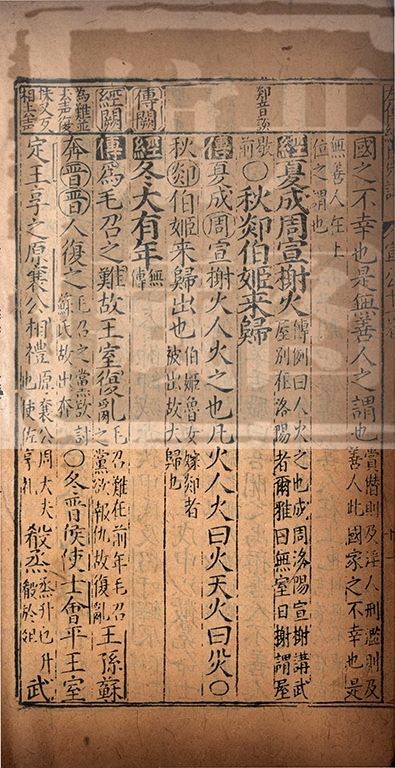 國之不幸也是無善人之謂也賞僭則及淫人刑濫則及善人此國家之不幸也是
無善人在上位之謂也
經夏成周宣榭火傳例曰人火之也成周洛陽宣榭講武屋別在洛陽者爾雅曰無室曰榭謂屋
歇前〇秋郯伯姬來歸
傳夏成周宣榭火人火之也凡火人火曰火天火曰災〇
秋郯伯姬來歸出也伯姬魯女嫁郯者被出故大歸也
經冬大有年無傳
傳為毛召之難故王室復亂毛召難在前年毛召之黨欲報仇故復亂王孫蘇
奔晉晉人復之毛召之黨欲討蘇氏故出奔〇冬晉侯使士會平王室
定王享之原襄公相禮原襄公周大夫也使佐享礼殽烝烝升也升殽於俎武
傳闕
經闕
為難並去聲復
扶又反相上公去
郯音談